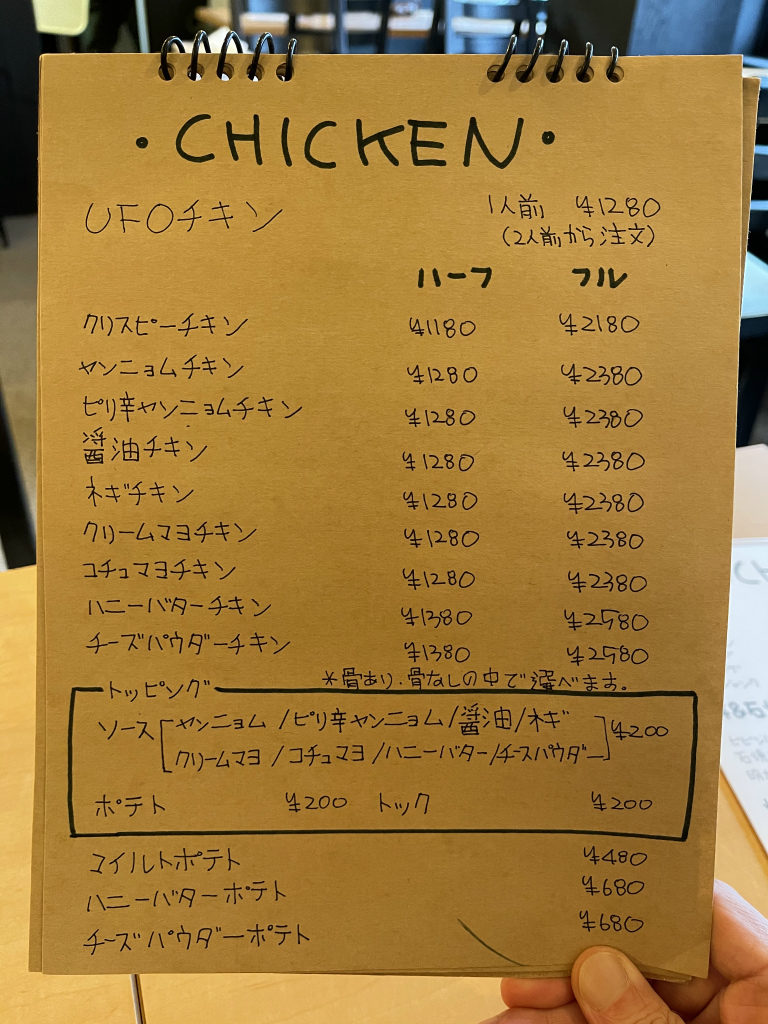 ・CHICKEN・
UFOチキン 1人前 ¥1280
(2人前から注文)
ハーフ フル
クリスピーチキン ¥1180 ¥2180
ヤンニョムチキン ¥1280 ¥2380
ピリ辛ヤンニョムチキン ¥1280 ¥2380
醤油チキン ¥1280 ¥2380
ネギチキン ¥1280 ¥2380
クリームマヨチキン ¥1280 ¥2380
コチュマヨチキン ¥1280 ¥2380
ハニーバターチキン ¥1380 ¥2580
チーズパウダーチキン ¥1380 ¥2580
*骨あり.骨なしの中で選べます。
トッピング
ソース[ヤンニョム/ピリ辛ヤンニョム/醤油/ネギ
クリームマヨ/コチュマヨ/ハニーバター/チーズパウダー] ¥200
ポテト ¥200 トック ¥200
コイルトポテト ¥480
ハニーバターポテト ¥680
チーズパウダーポテト ¥680